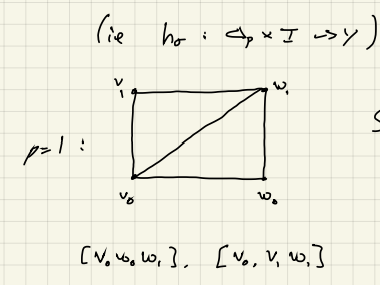 (ie h_σ : Δ_p × I → Y)
v_1 w_1
p=1 :
v_0 w_0
[v_0 w_0 w_1], [v_0, v_1 w_1]